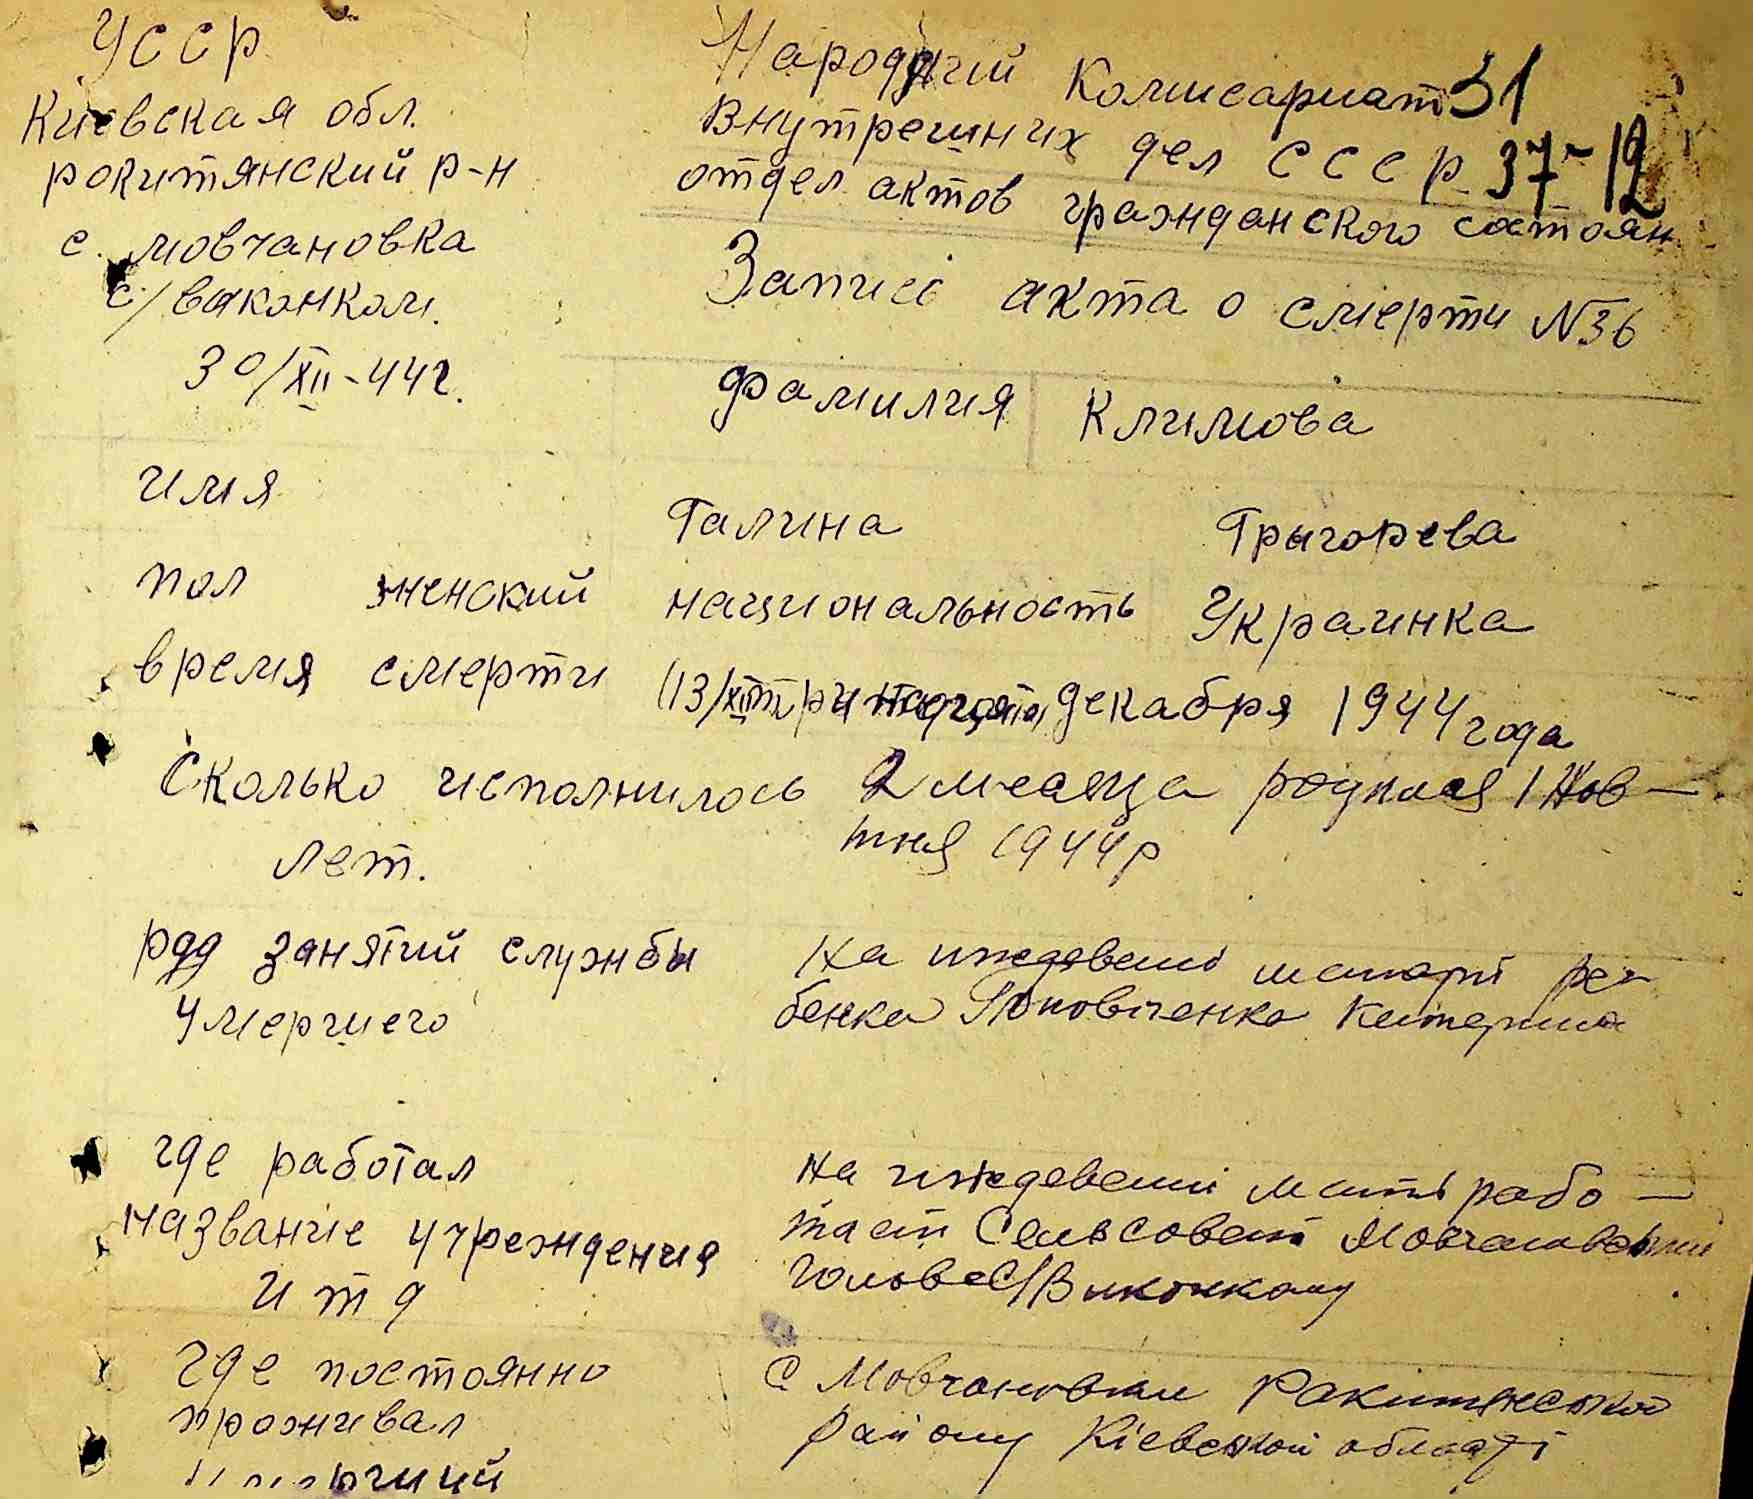 УССР
Киевская обл.
рокитянский р-н
с. мовчановка
с/виконком.
30/XII-44г.
Народний Комисариат 31
Внутрешних дел СССР 37-12
отдел актов гражданского состоян
Запись акта о смерти №36
фамилия Климова
имя Галина Григорева
пол женский национальность Украинка
время смерти (13/XII тринадцатого декабря 1944 года
Сколько исполнилось 2 месяца родилася 1 Жов-
лет. тня 1944р
род занятий службы На иждевені матері ре-
умершего бенка Поповіченко Катерина
где работал На иждевені мать рабо-
название учреждения тает Сельсовет Мовчановки
и т д Голова С/Виконкому
где постоянно с Мовчановки Ракитянской
проживал району Кіевской області